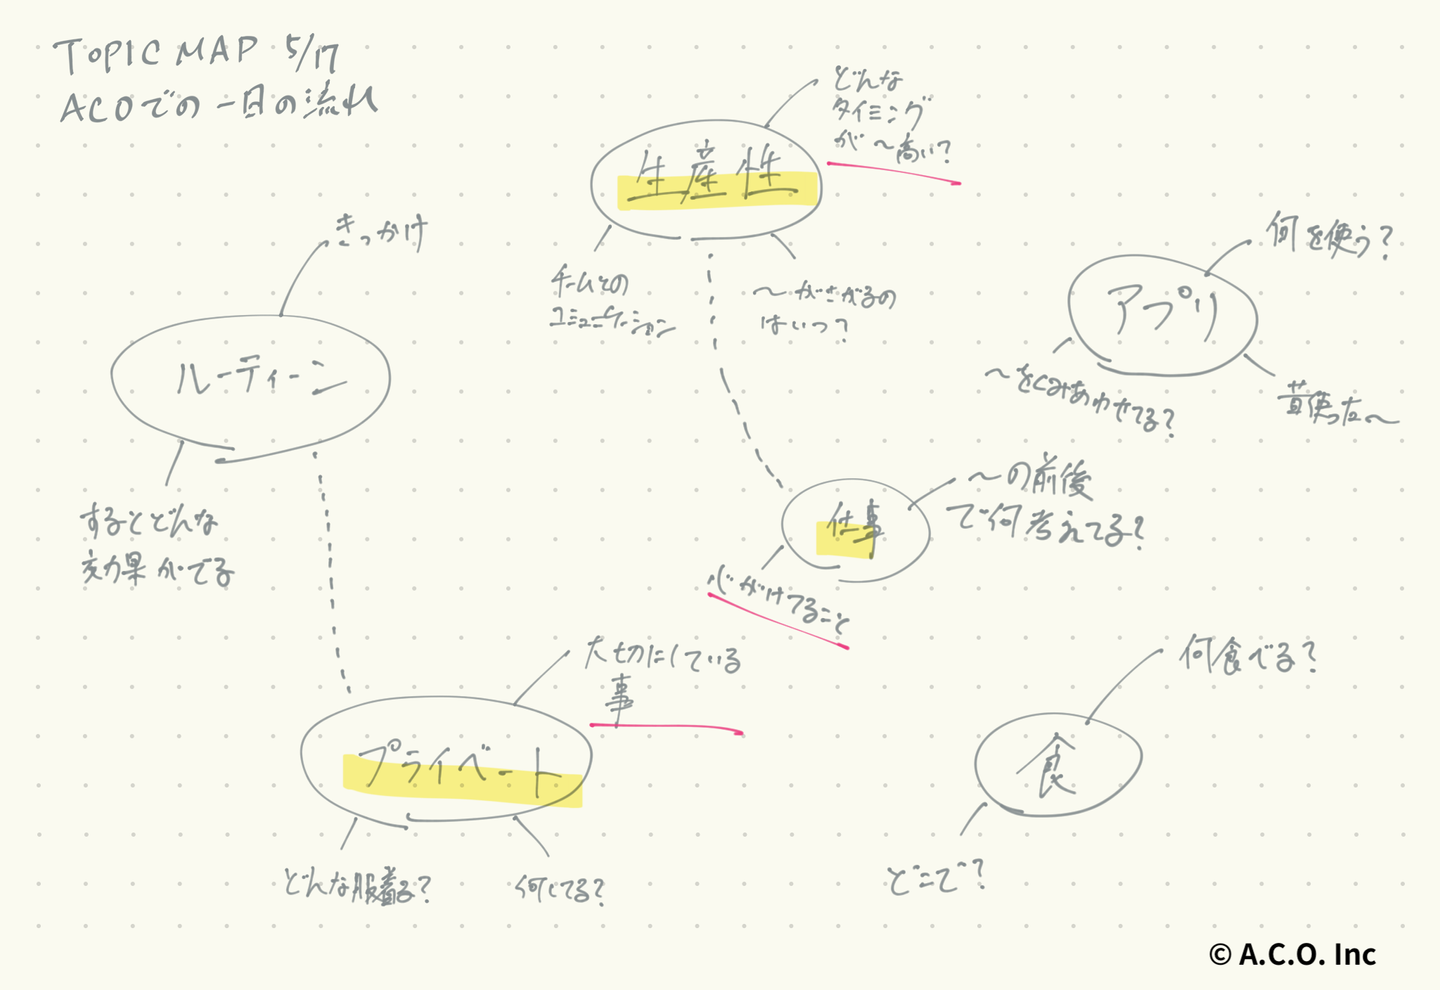 TOPIC MAP 5/17
ACOでの一日の流れ
どんな
タイミング
が〜高い?
生産性
チームとの
コミュニケーション
〜がさがるの
はいつ?
きっかけ
ルーティーン
するとどんな
効果がでる
何を使う?
アプリ
〜をくみあわせてる?
昔使った〜
〜の前後
で何考えてる?
仕事
心がけてること
大切にしている
事
プライベート
どんな服着る?
何してる?
何食べる?
食
どこで?
© A.C.O. Inc